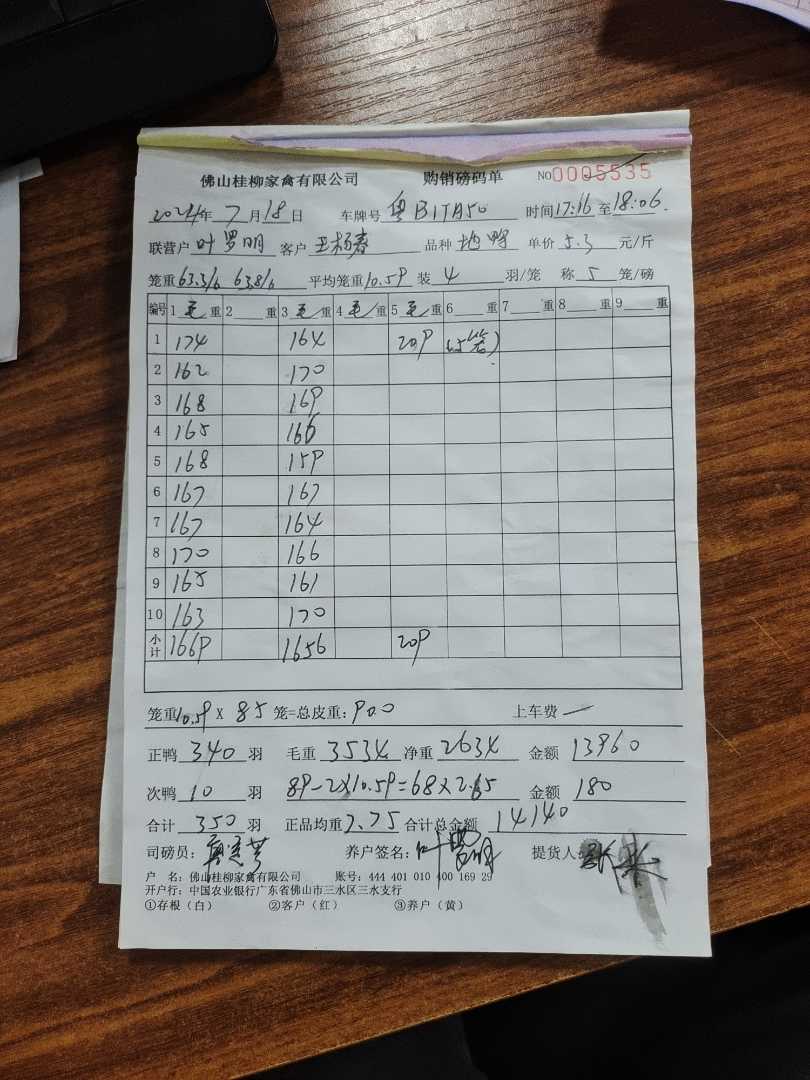 佛山桂柳家禽有限公司 购销磅码单 NO 0005535
2024年 7月18日 车牌号 粤B1TA50 时间17:16至18:06
联营户 叶罗明 客户 王杨春 品种 鸭 单价 5.3 元/斤
笼重63.3/6 63.8/6 平均笼重10.59 装 4 羽/笼 称 5 笼/磅
编号 1 毛 重 2 重 3 毛 重 4 毛 重 5 毛 重 6 重 7 重 8 重 9 重
1 174 164 209 (5笼)
2 162 170
3 168 169
4 165 166
5 168 159
6 167 167
7 167 164
8 170 166
9 165 161
10 163 170
小计 1669 1656 209
笼重10.59 X 85 笼=总皮重: 900 上车费 —
正鸭 340 羽 毛重 3534 净重 2634 金额 13960
次鸭 10 羽 89-2×10.59=68×2.65 金额 180
合计 350 羽 正品均重 7.75 合计总金额 14140
司磅员: 养户签名: 叶罗明 提货人:
户 名: 佛山桂柳家禽有限公司 账号: 444 401 010 400 169 29
开户行: 中国农业银行广东省佛山市三水区三水支行
①存根(白) ②客户(红) ③养户(黄)